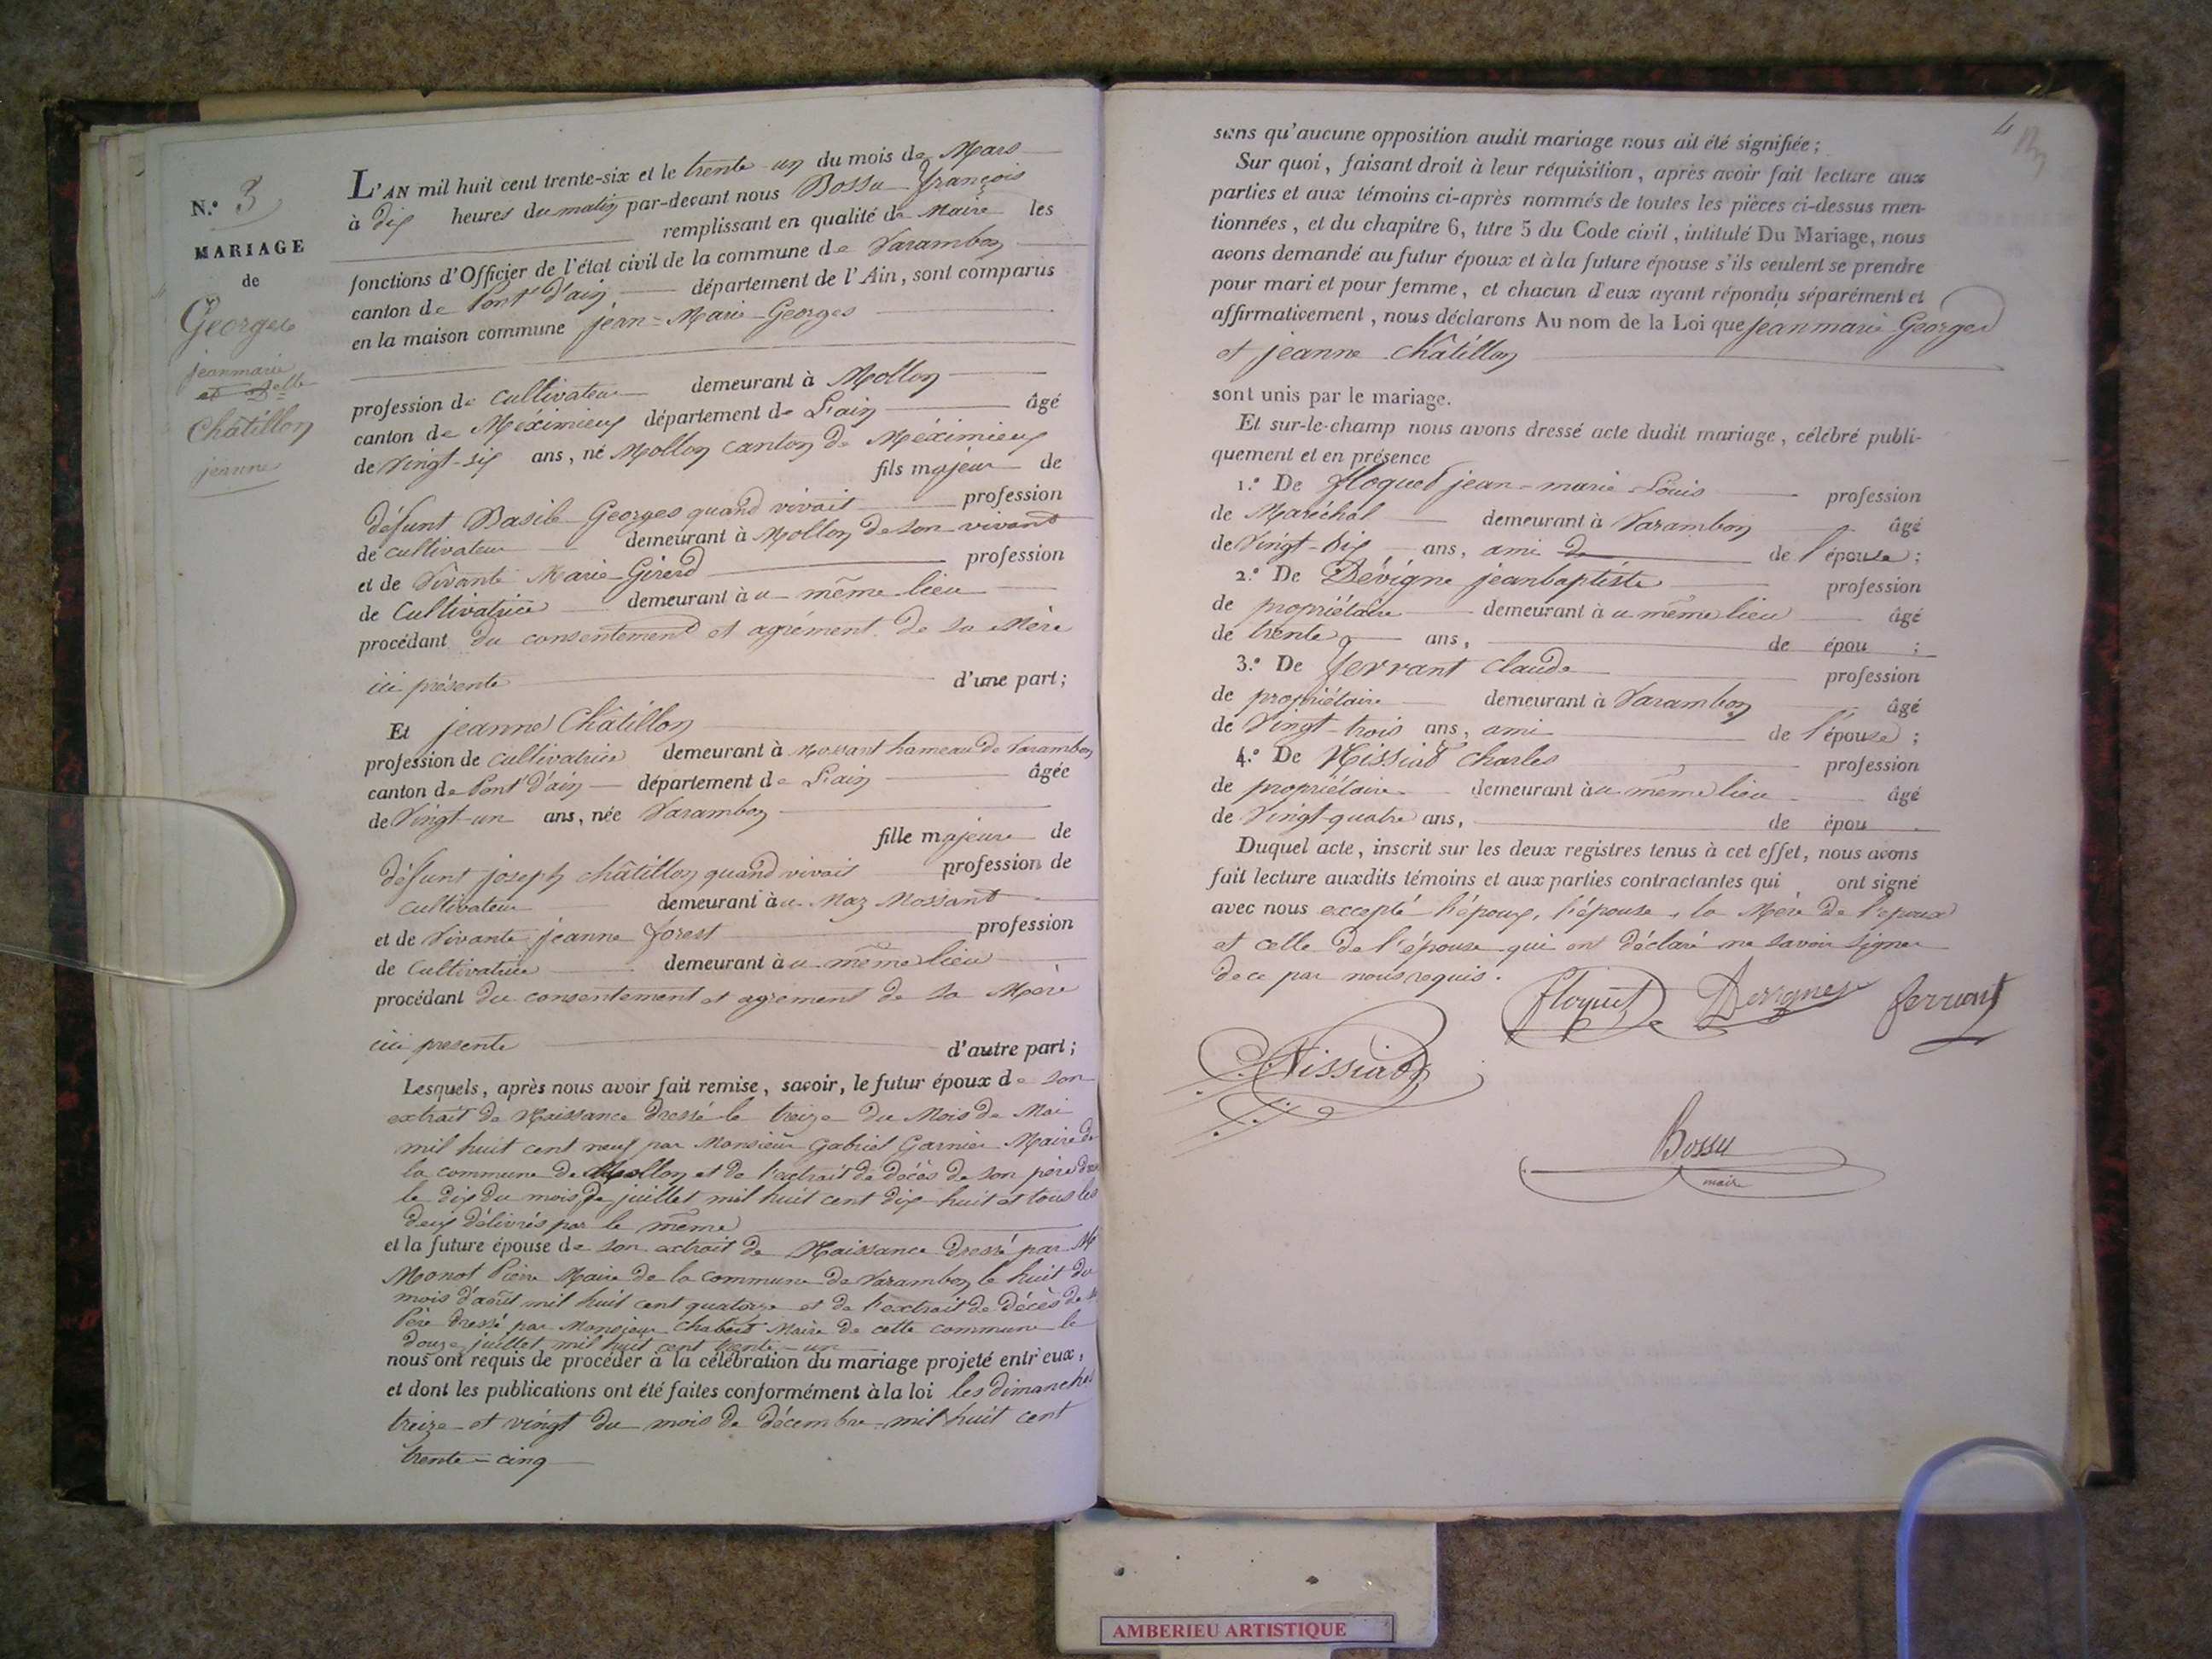 N.º 3
MARIAGE
de
Georges
jeanmarie
et Delle
Châtillon
jeanne
L'AN mil huit cent trente-six et le trente-un du mois de Mars
à dix heures du matin par-devant nous Bossu François
remplissant en qualité de Maire les
fonctions d'Officier de l'état civil de la commune de Varambon
canton de Pont d'ain, département de l'Ain, sont comparus
en la maison commune jean-Marie Georges
profession de cultivateur demeurant à Mollon
canton de Méximieux département de L'ain âgé
de vingt-six ans, né Mollon canton de Méximieux
fils majeur de
défunt Basile Georges quand vivait profession
de cultivateur demeurant à Mollon de son vivant
et de Vivante Marie Girerd profession
de Cultivatrice demeurant à u même lieu
procédant du consentement et agrément de sa Mère
ici présente d'une part;
Et jeanne Châtillon
profession de cultivatrice demeurant à Mossant hameau de Varambon
canton de Pont d'ain département de L'ain âgée
de Vingt-un ans, née Varambon
fille majeure de
défunt joseph châtillon quand vivait profession de
cultivateur demeurant à u Maz Mossant
et de Vivante jeanne Forest profession
de Cultivatrice demeurant à u même lieu
procédant du consentement et agrement de sa Mère
ici presente d'autre part;
Lesquels, après nous avoir fait remise, savoir, le futur époux de son
extrait de Naissance dressé le treize du Mois de Mai
mil huit cent neuf par Monsieur Gabriel Garnier Maire de
la commune de Mollon et de l'extrait de décès de son père
le dix du mois de juillet mil huit cent dix-huit et tous les
deux délivrés par le même
et la future épouse de son extrait de Naissance dressé par Mr
Monot Pierre Maire de la commune de Varambon le huit du
mois d'août mil huit cent quatorze et de l'extrait de décès de
Père dressé par Monsieur Chabert Maire de cette commune le
douze juillet mil huit cent trente-un
nous ont requis de procéder à la célébration du mariage projeté entr'eux,
et dont les publications ont été faites conformément à la loi les dimanches
treize et vingt du mois de décembre mil huit cent
trente-cinq
4
sans qu'aucune opposition audit mariage nous ait été signifiée;
Sur quoi, faisant droit à leur réquisition, après avoir fait lecture aux
parties et aux témoins ci-après nommés de toutes les pièces ci-dessus men-
tionnées, et du chapitre 6, titre 5 du Code civil, intitulé Du Mariage, nous
avons demandé au futur époux et à la future épouse s'ils veulent se prendre
pour mari et pour femme, et chacun d'eux ayant répondu séparément et
affirmativement, nous déclarons Au nom de la Loi que jeanmarie Georges
et jeanne châtillon
sont unis par le mariage.
Et sur-le-champ nous avons dressé acte dudit mariage, célébré publi-
quement et en présence
1.º De Floquet jean-marie Louis profession
de Maréchal demeurant à Varambon âgé
de Vingt-dix ans, ami de de l'épouse;
2.º De Dévigne jeanbaptiste profession
de propriétaire demeurant à u même lieu âgé
de trente ans, de épou ;
3.º De Ferrant Claude profession
de propriétaire demeurant à Varambon âgé
de Vingt-trois ans, ami de l'épouse;
4.º De Nissiat Charles profession
de propriétaire demeurant à u même lieu âgé
de Vingt-quatre ans, de épou
Duquel acte, inscrit sur les deux registres tenus à cet effet, nous avons
fait lecture auxdits témoins et aux parties contractantes qui ont signé
avec nous excepté l'époux, l'épouse, la Mère de l'epoux
et celle de l'épouse qui ont déclaré ne savoir signer
de ce par nous requis.
Floquet Devigne Ferrant
Nissiat
Bossu
maire
AMBERIEU ARTISTIQUE